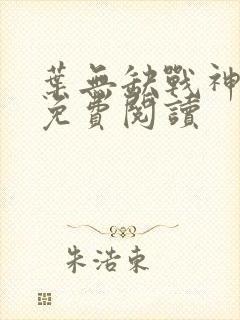 葉無缺戰神
免費閱讀
朱浩東